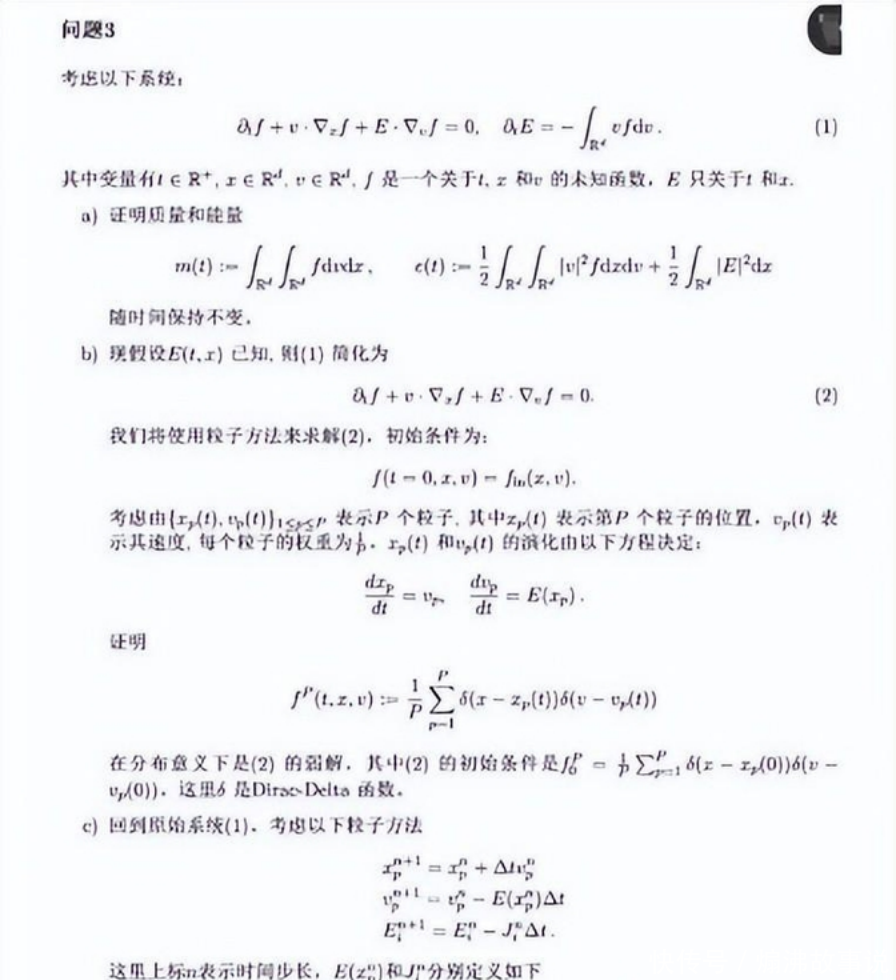 问题3
考虑以下系统：
∂ₜf + v · ∇ₓf + E · ∇ᵥf = 0, ∂ₜE = − ∫_{ℝᵈ} vfdv. (1)
其中变量有t ∈ ℝ⁺, x ∈ ℝᵈ, v ∈ ℝᵈ, f 是一个关于t, x 和v 的未知函数，E 只关于t 和x.
a) 证明质量和能量
m(t) := ∫_{ℝᵈ} ∫_{ℝᵈ} fdvdx, e(t) := 1/2 ∫_{ℝᵈ} ∫_{ℝᵈ} |v|²fdxdv + 1/2 ∫_{ℝᵈ} |E|²dx
随时间保持不变.
b) 现假设E(t, x) 已知, 则(1) 简化为
∂ₜf + v · ∇ₓf + E · ∇ᵥf = 0. (2)
我们将使用粒子方法来求解(2)，初始条件为:
f(t = 0, x, v) = f_{in}(x, v).
考虑由{x_p(t), v_p(t)}_{1≤p≤P} 表示P 个粒子, 其中x_p(t) 表示第P 个粒子的位置，v_p(t) 表
示其速度, 每个粒子的权重为1/P. x_p(t) 和v_p(t) 的演化由以下方程决定:
dx_p/dt = v_p, dv_p/dt = E(x_p).
证明
f^P(t, x, v) := 1/P ∑_{p=1}^{P} δ(x − x_p(t))δ(v − v_p(t))
在分布意义下是(2) 的弱解. 其中(2) 的初始条件是f_0^P = 1/P ∑_{p=1}^{P} δ(x − x_p(0))δ(v −
v_p(0)). 这里δ 是Dirac-Delta 函数。
c) 回到原始系统(1). 考虑以下粒子方法
x_p^{n+1} = x_p^n + Δtv_p^n
v_p^{n+1} = v_p^n − E(x_p^n)Δt
E_i^{n+1} = E_i^n − J_i^nΔt.
这里上标n表示时间步长, E(x_p^n)和J_i^n分别定义如下